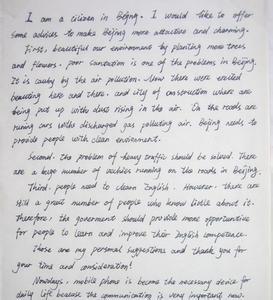 I am a citizen in Beijing. I would like to offer
some advices to make Beijing more attractive and charming.
First, beautiful our environment by planting more trees
and flowers. poor sanitation is one of the problems in Beijing.
It is by the air pollution. Now there were erected
beauting here and there. and city of construction where are
being put up with dust rising in the air. On the roads are
runing cars with discharged gas polluting air. Beijing needs to
provide people with clean enviroment.
Second. the problem of heavy traffic should be solved. There
are a huge number of vechies running on the roads in Beijing.
Third. people need to learn English. However. there are
still a great number of people who know little about it.
therefore, the government should provide more opportunities
for people to learn and improve their English competence.
Those are my personal suggestions and thank you for
your time and consideration!
Nowdays, mobile phone is become the necessary device for
daily life because the communication is very important now.